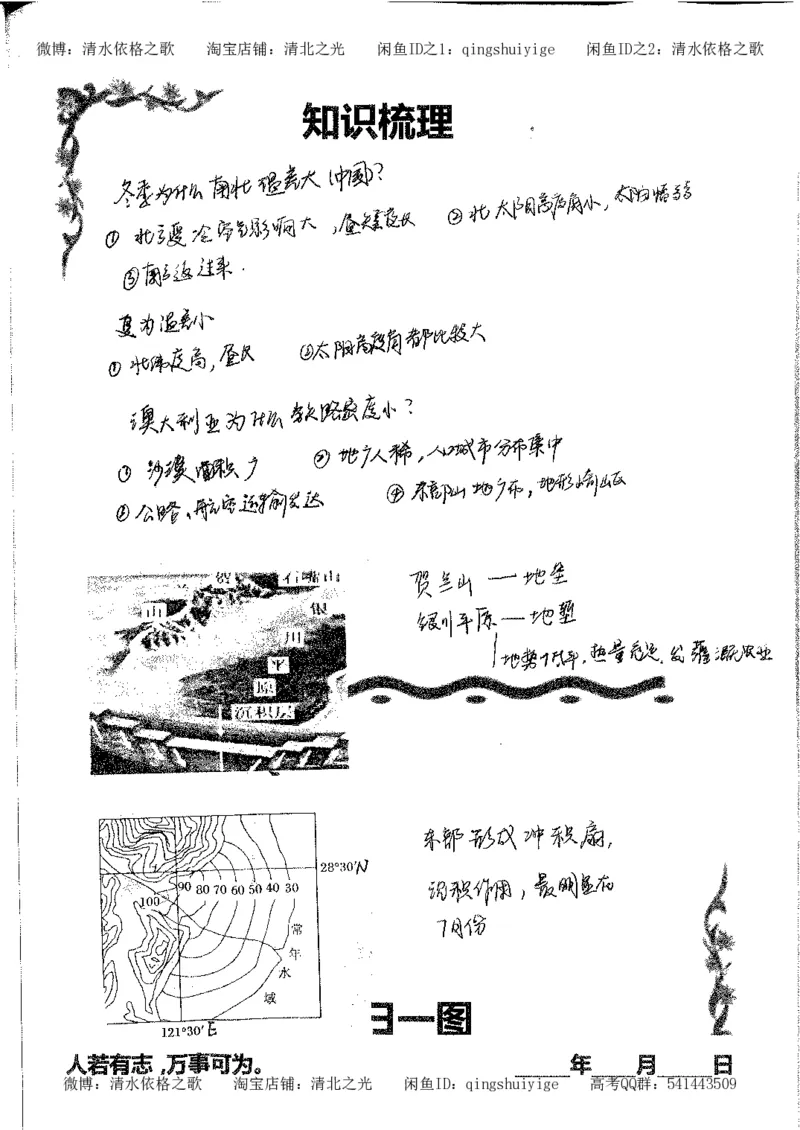 微博：清水依格之歌 淘宝店铺：清北之光 闲鱼ID之1：qingshuiyige 闲鱼ID之2：清水依格之歌
知识梳理
冬季为什么南北温差大（中国）？
① 北方受冷空气影响大，昼短夜长 ② 北太阳高度角小，太阳
③ 南
夏为温差小
① 北纬度高，昼长 ②太阳高度角都比较大
澳大利亚为什么铁路密度小？
① 沙漠面积广 ② 地广人稀，人口城市分布集中
③ 公路、航空运输发达 ④ 东部山地广布，地形崎岖
贺 石嘴山
山 银
川
平
原
沉积层
贺兰山 — 地垒
银川平原 — 地堑
地势平，热量充足，发灌溉农业
28°30′N
90 80 70 60 50 40 30
100
常
年
水
域
121°30′E
东部形成冲积扇，
沉积作用，最明显在
7月份
日一图
人若有志，万事可为。 年 月 日
微博：清水依格之歌 淘宝店铺：清北之光 闲鱼ID：qingshuiyige 高考QQ群：541443509